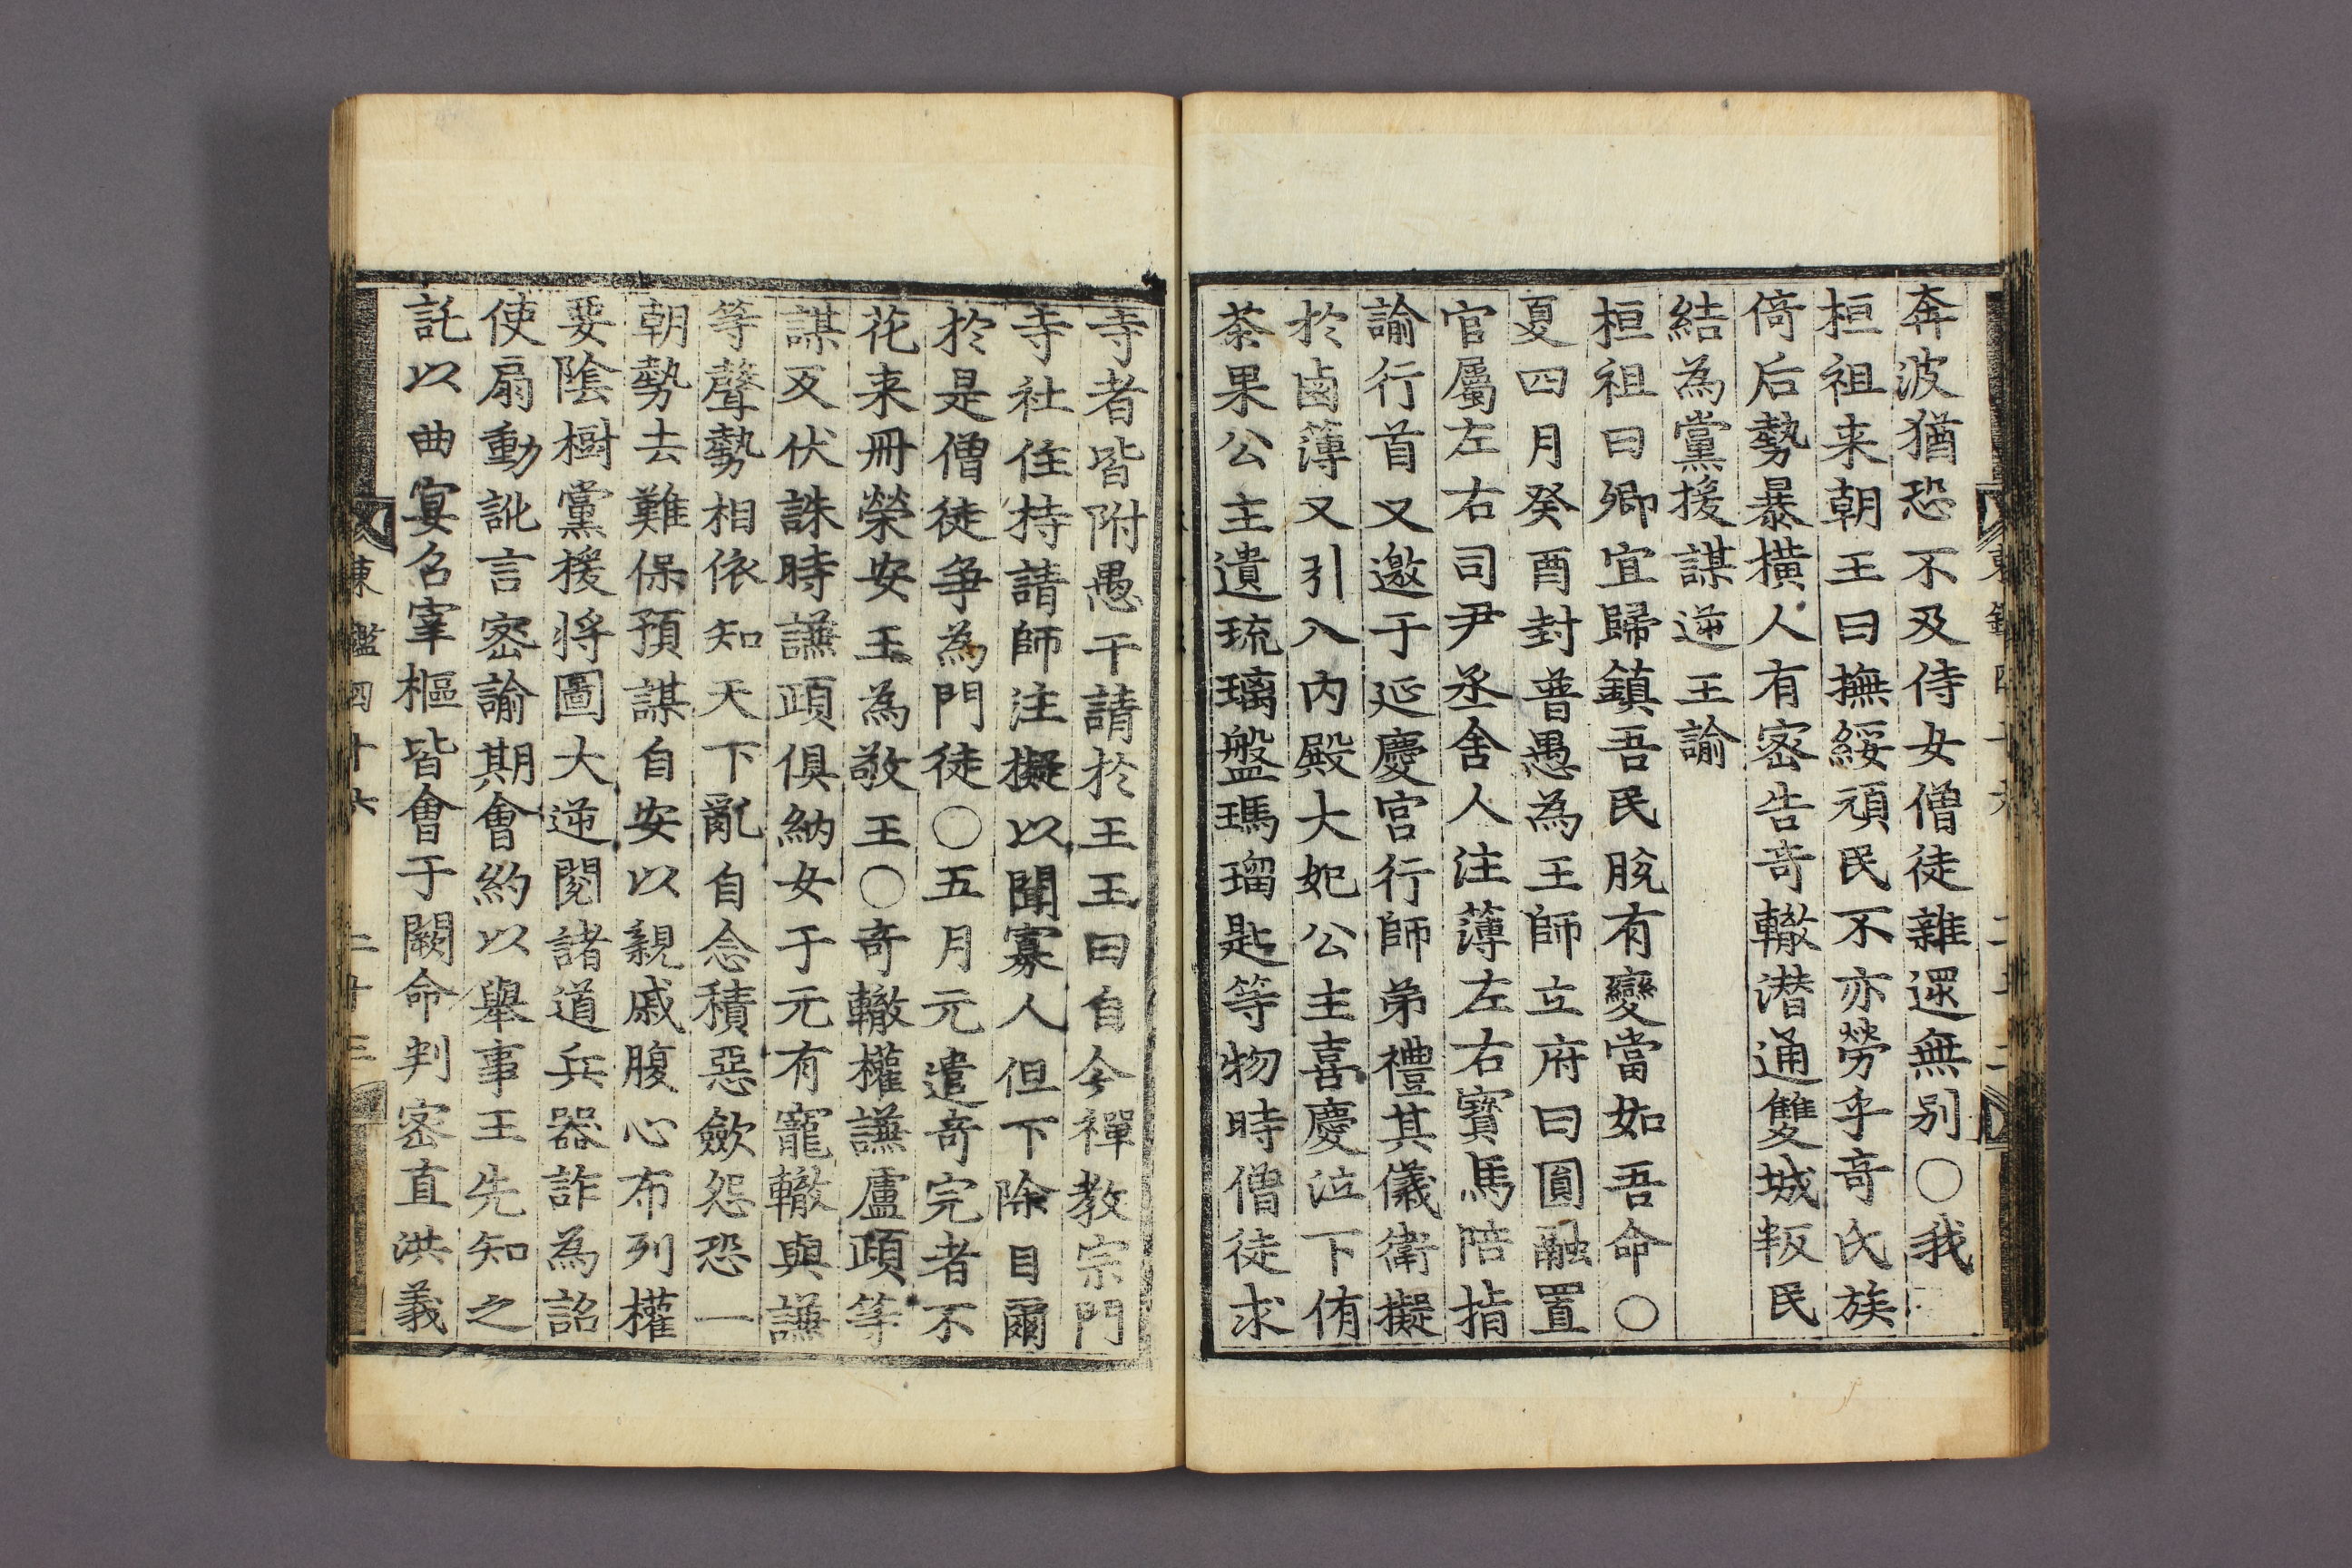 奔波猶恐不及侍女僧徒雜遝無别○我
桓祖来朝王曰撫綏頑民不亦勞乎竒氏族
倚后勢暴橫人有密告竒轍潜通雙城叛民
結為黨援謀逆王諭
桓祖曰卿宜歸鎮吾民脫有變當如吾命○
夏四月癸酉封普愚為王師立府曰圓融置
官屬左右司尹丞舍人注薄左右寳馬陪指
諭行首又邀于延慶宮行師弟禮其儀衛擬
於鹵薄又引入内殿大妃公主喜慶泣下侑
茶果公主遺琉璃盤瑪瑠匙等物時僧徒求
寺者皆附愚干請於王王曰自今禪教宗門
寺社住持請師注擬以聞寡人但下除目爾
於是僧徒争為門徒○五月元遣竒完者不
花来冊榮安王為敬王○竒轍權謙盧頙等
謀叐伏誅時謙頙俱納女于元有寵轍與謙
等聲勢相依知天下亂自念積惡歛怨恐一
朝勢去難保預謀自安以親戚腹心布列權
要陰樹黨援將圖大逆閱諸道兵器詐為詔
使扇動訛言密諭期會約以舉事王先知之
託以曲宴名宰樞皆會于闕命判密直洪義
東鑑四十六 二十三